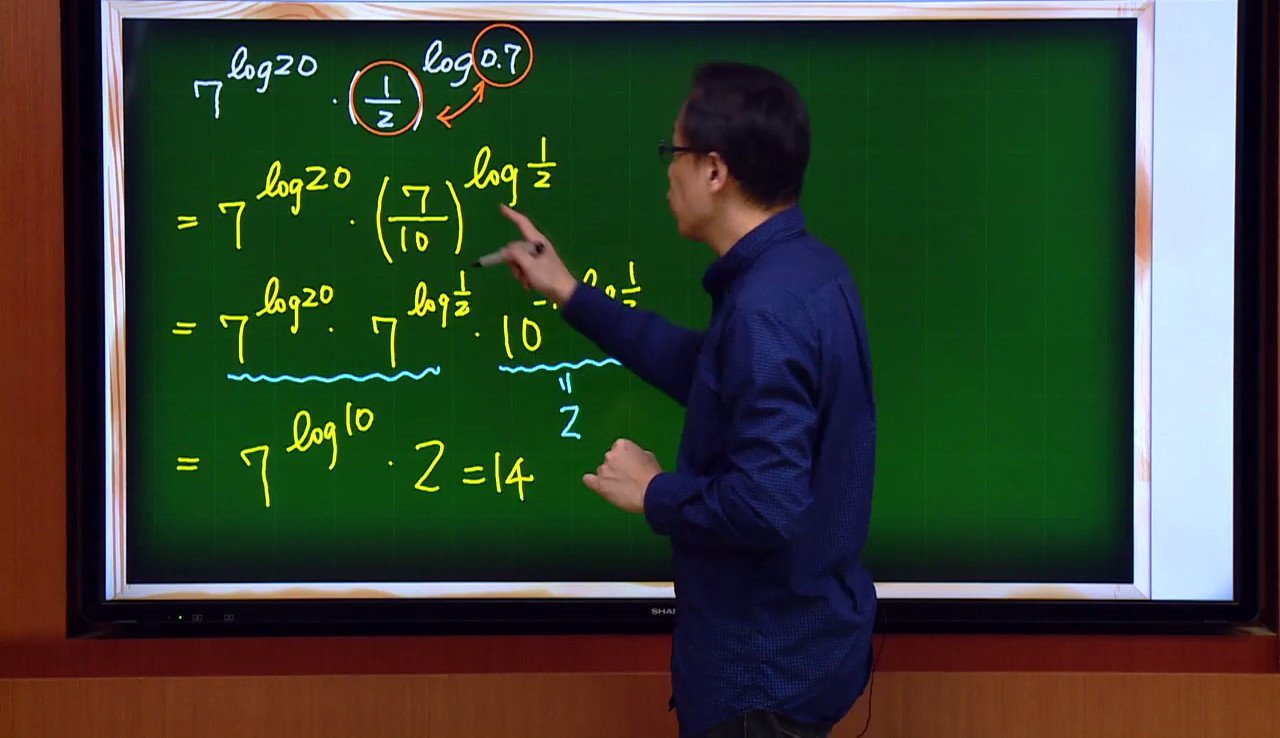 7^{log20} · (1/2)^{log0.7}
= 7^{log20} · (7/10)^{log 1/2}
= 7^{log20} · 7^{log 1/2} · 10^{-log 1/2}
"
2
= 7^{log10} · 2 = 14